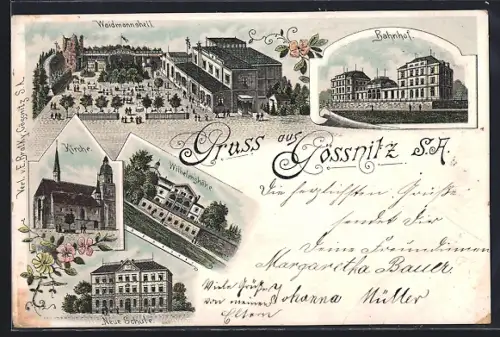 Waidmannsheil
Bahnhof.
Gruss aus Gössnitz S.A.
Kirche
Wilhelmshöhe
Neue Schule
Verl. v. E. Gössnitz S.A.
Die herzlichsten Grüße
sendet dir
Deine Freundinnen
Margaretha Bauer.
Johanna Müller
Viele Grüße
von meinen
Eltern